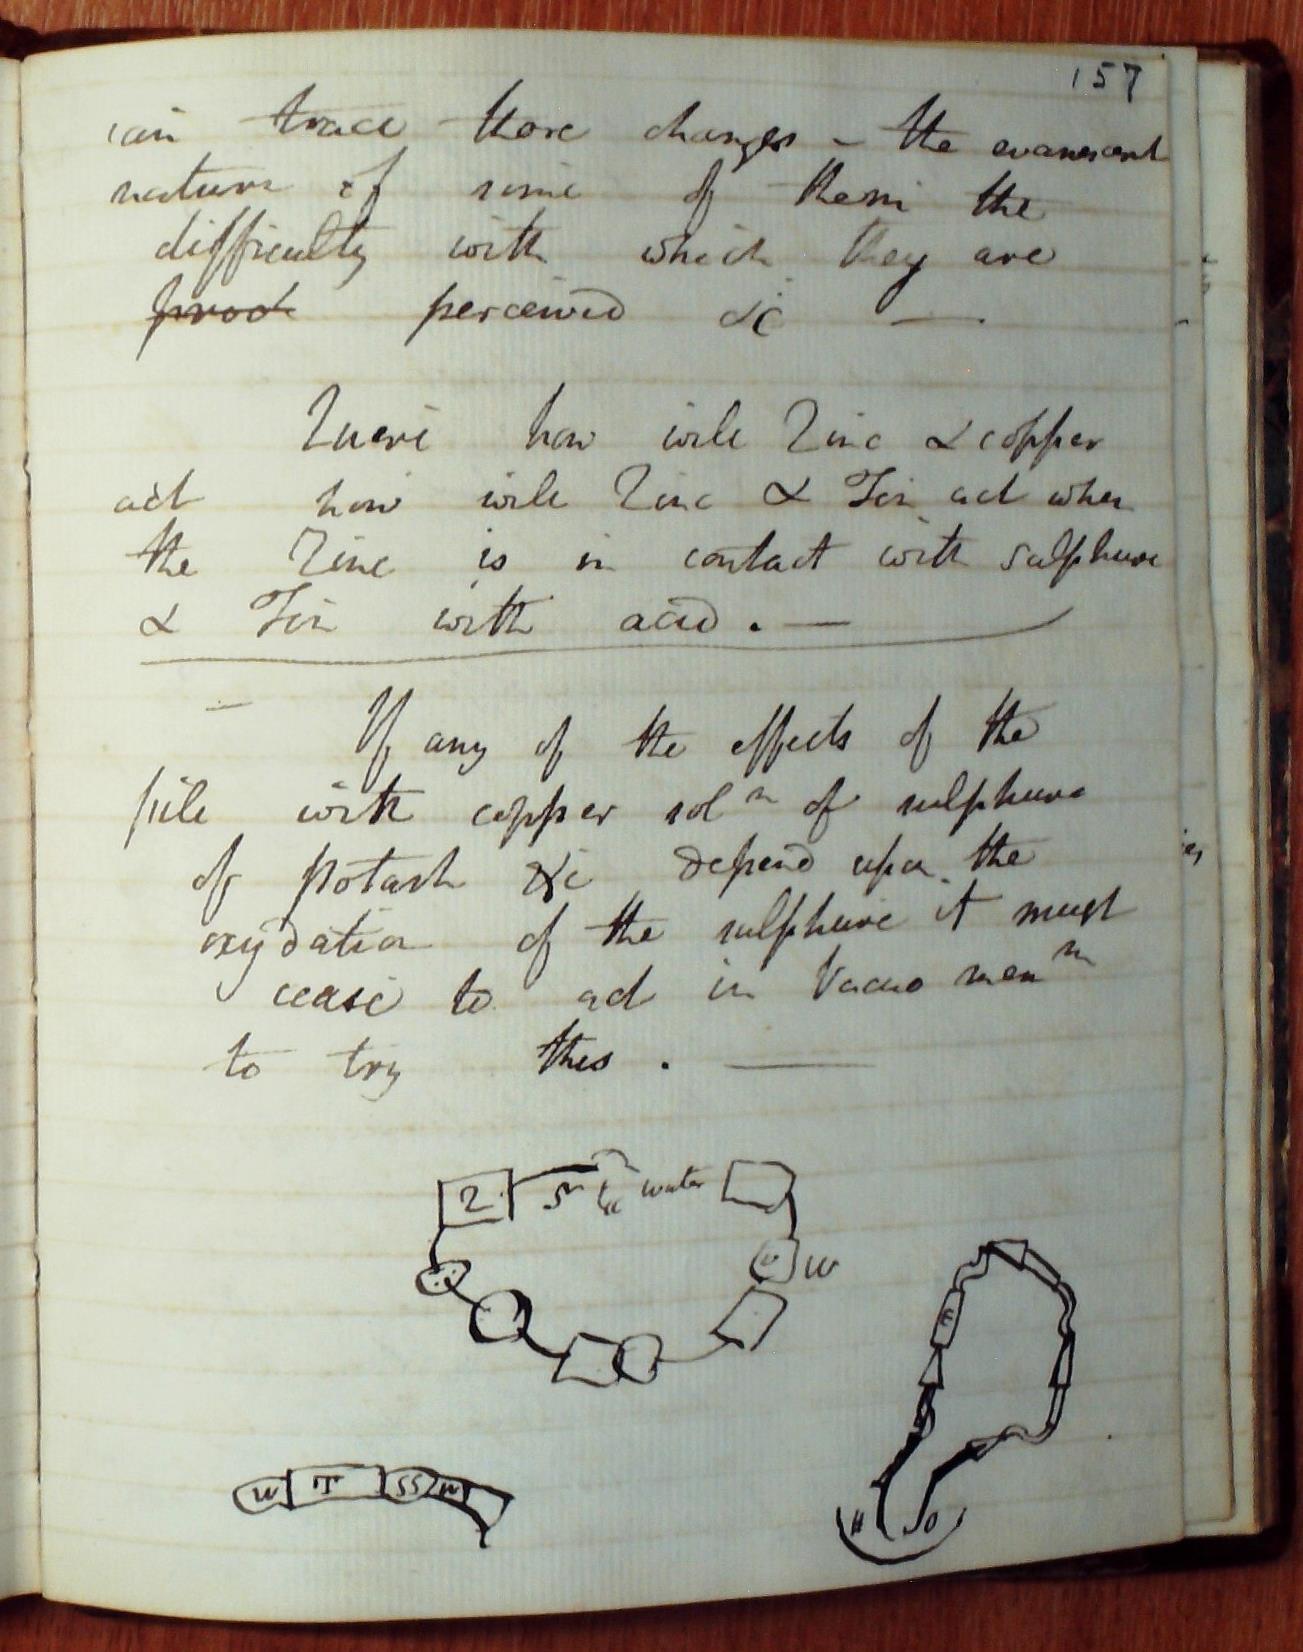 157
can trace these changes - the evanescent
nature of some of them the
difficulty with which they are
prod perceived &c —
Quere how will Zinc & copper
act how will Zinc & Tin act when
the Zinc is in contact with sulphure
& Tin with acid. —
If any of the effects of the
pile with copper solⁿ of sulphure
of Potash &c depend upon the
oxydation of the sulphure it must
cease to act in Vacuo memᵐ
to try this. —
Z water
W
W T SS W